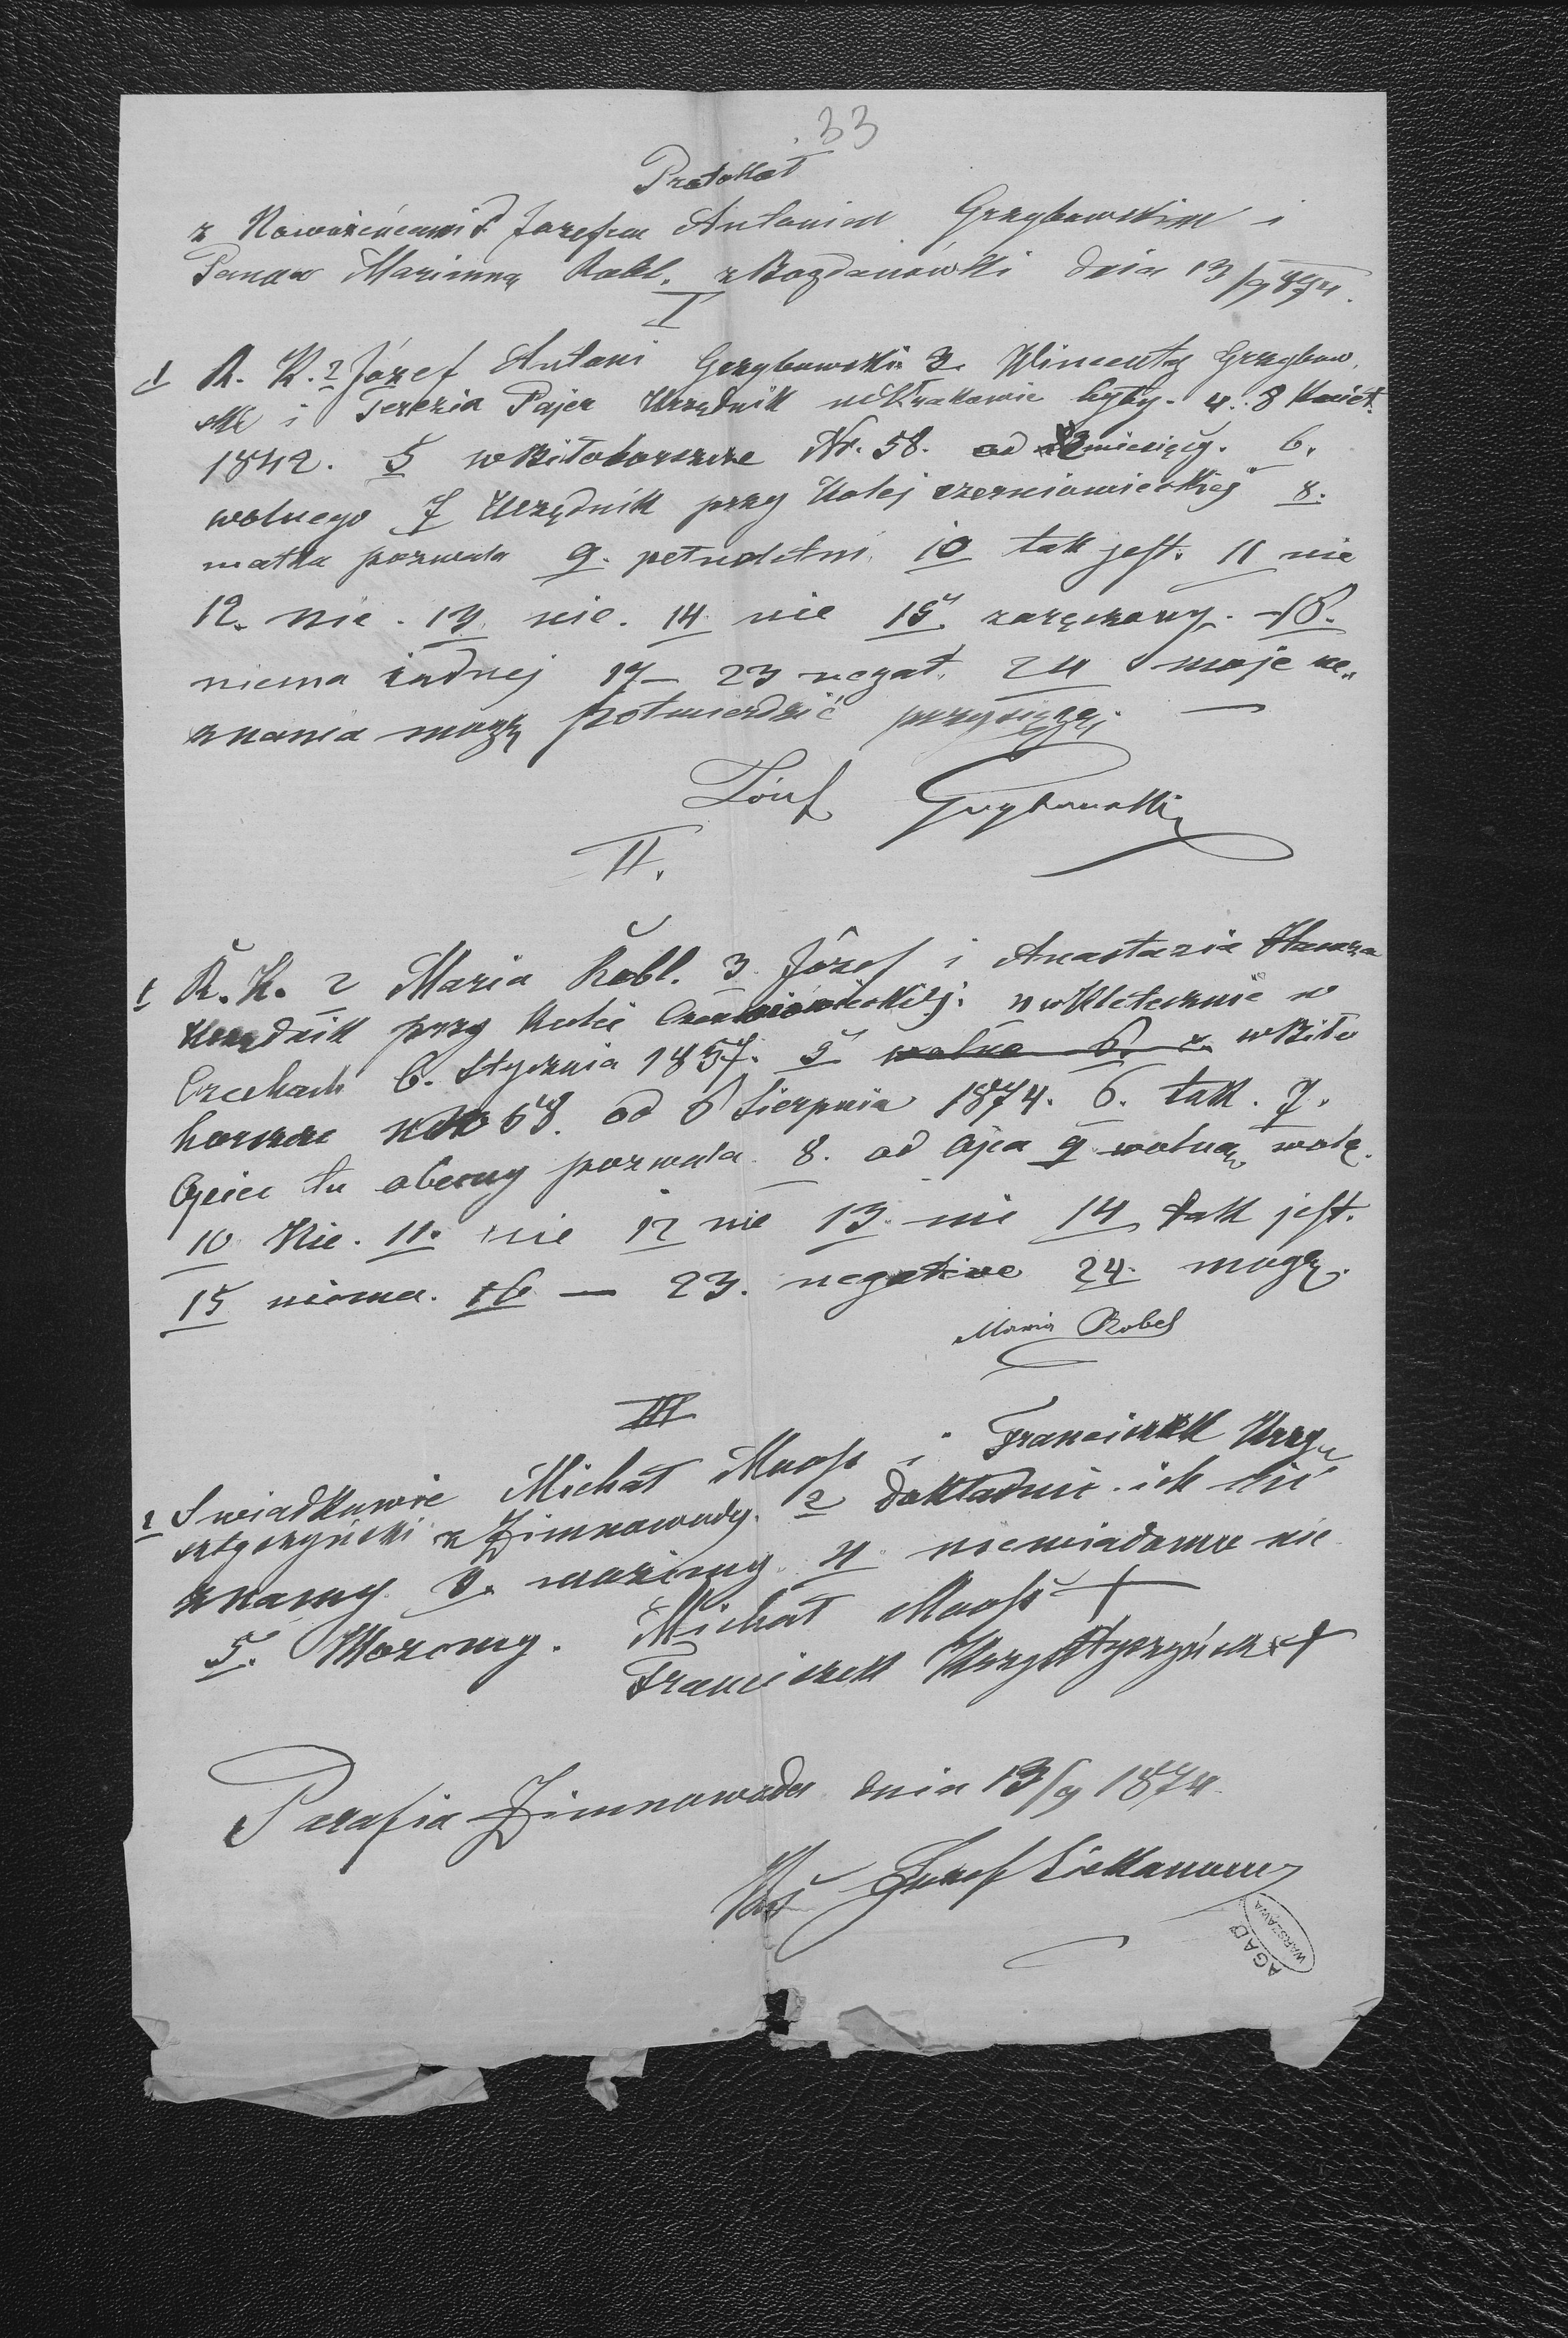 33
Protokół
z Nowożeńcami Jozefem Antonim Grzybowskim i
Panną Marianną Robl. z Bogdanówki dnia 13/9 874.
I
1 R. K. 2 Józef Antoni Grzybowski 3. Wincenty Grzybow
ski i Terezia Pajer Urzędnik w Krakowie były. 4. 8 Kwiet.
1842. 5 w Biłohorszcze Nr. 58. od miesięcy. 6.
wolnego 7 Urzędnik przy Kolej czerniowieckiej 8.
matka pozwala 9. pełnoletni 10 tak jest. 11 nie
12. nie. 13 nie. 14 nie 15. zaręczony. 16.
niema żadnej 17 – 23 negat. 24 moje ze„
znania mogę potwierdzić przysięgą. —
Józef Grzybowski
II.
1 R. K. 2 Maria Robl. 3 Józef i Anastazia
Urzędnik przy Kolei Czerniowieckiej. w Kletecznie w
Czechach 6. Stycznia 1857. 5 wolne 6. w Biło
horszcze 58. od 6 Sierpnia 1874. 6. tak. 7.
Ojciec tu obecny pozwala 8. od Ojca 9 wolną wolę.
10 Nie. 11. nie 12 nie 13. nie 14 tak jest.
15 niema. 16 — 23. negative 24. mogę.
Maria Robel
III
1 Swiadkowie Michał Maass i Franciszek Krzy„
sztyczyński z Zimnawody. 2 dokładnie ich
znamy. 3. możemy 4 niewiadomo nie
5. Możemy. Michał Maass +
Franciszek Krzysztyczyński +
Parafia Zimnawoda dnia 13/9 1874
Józef
AGAD
WARSZAWA